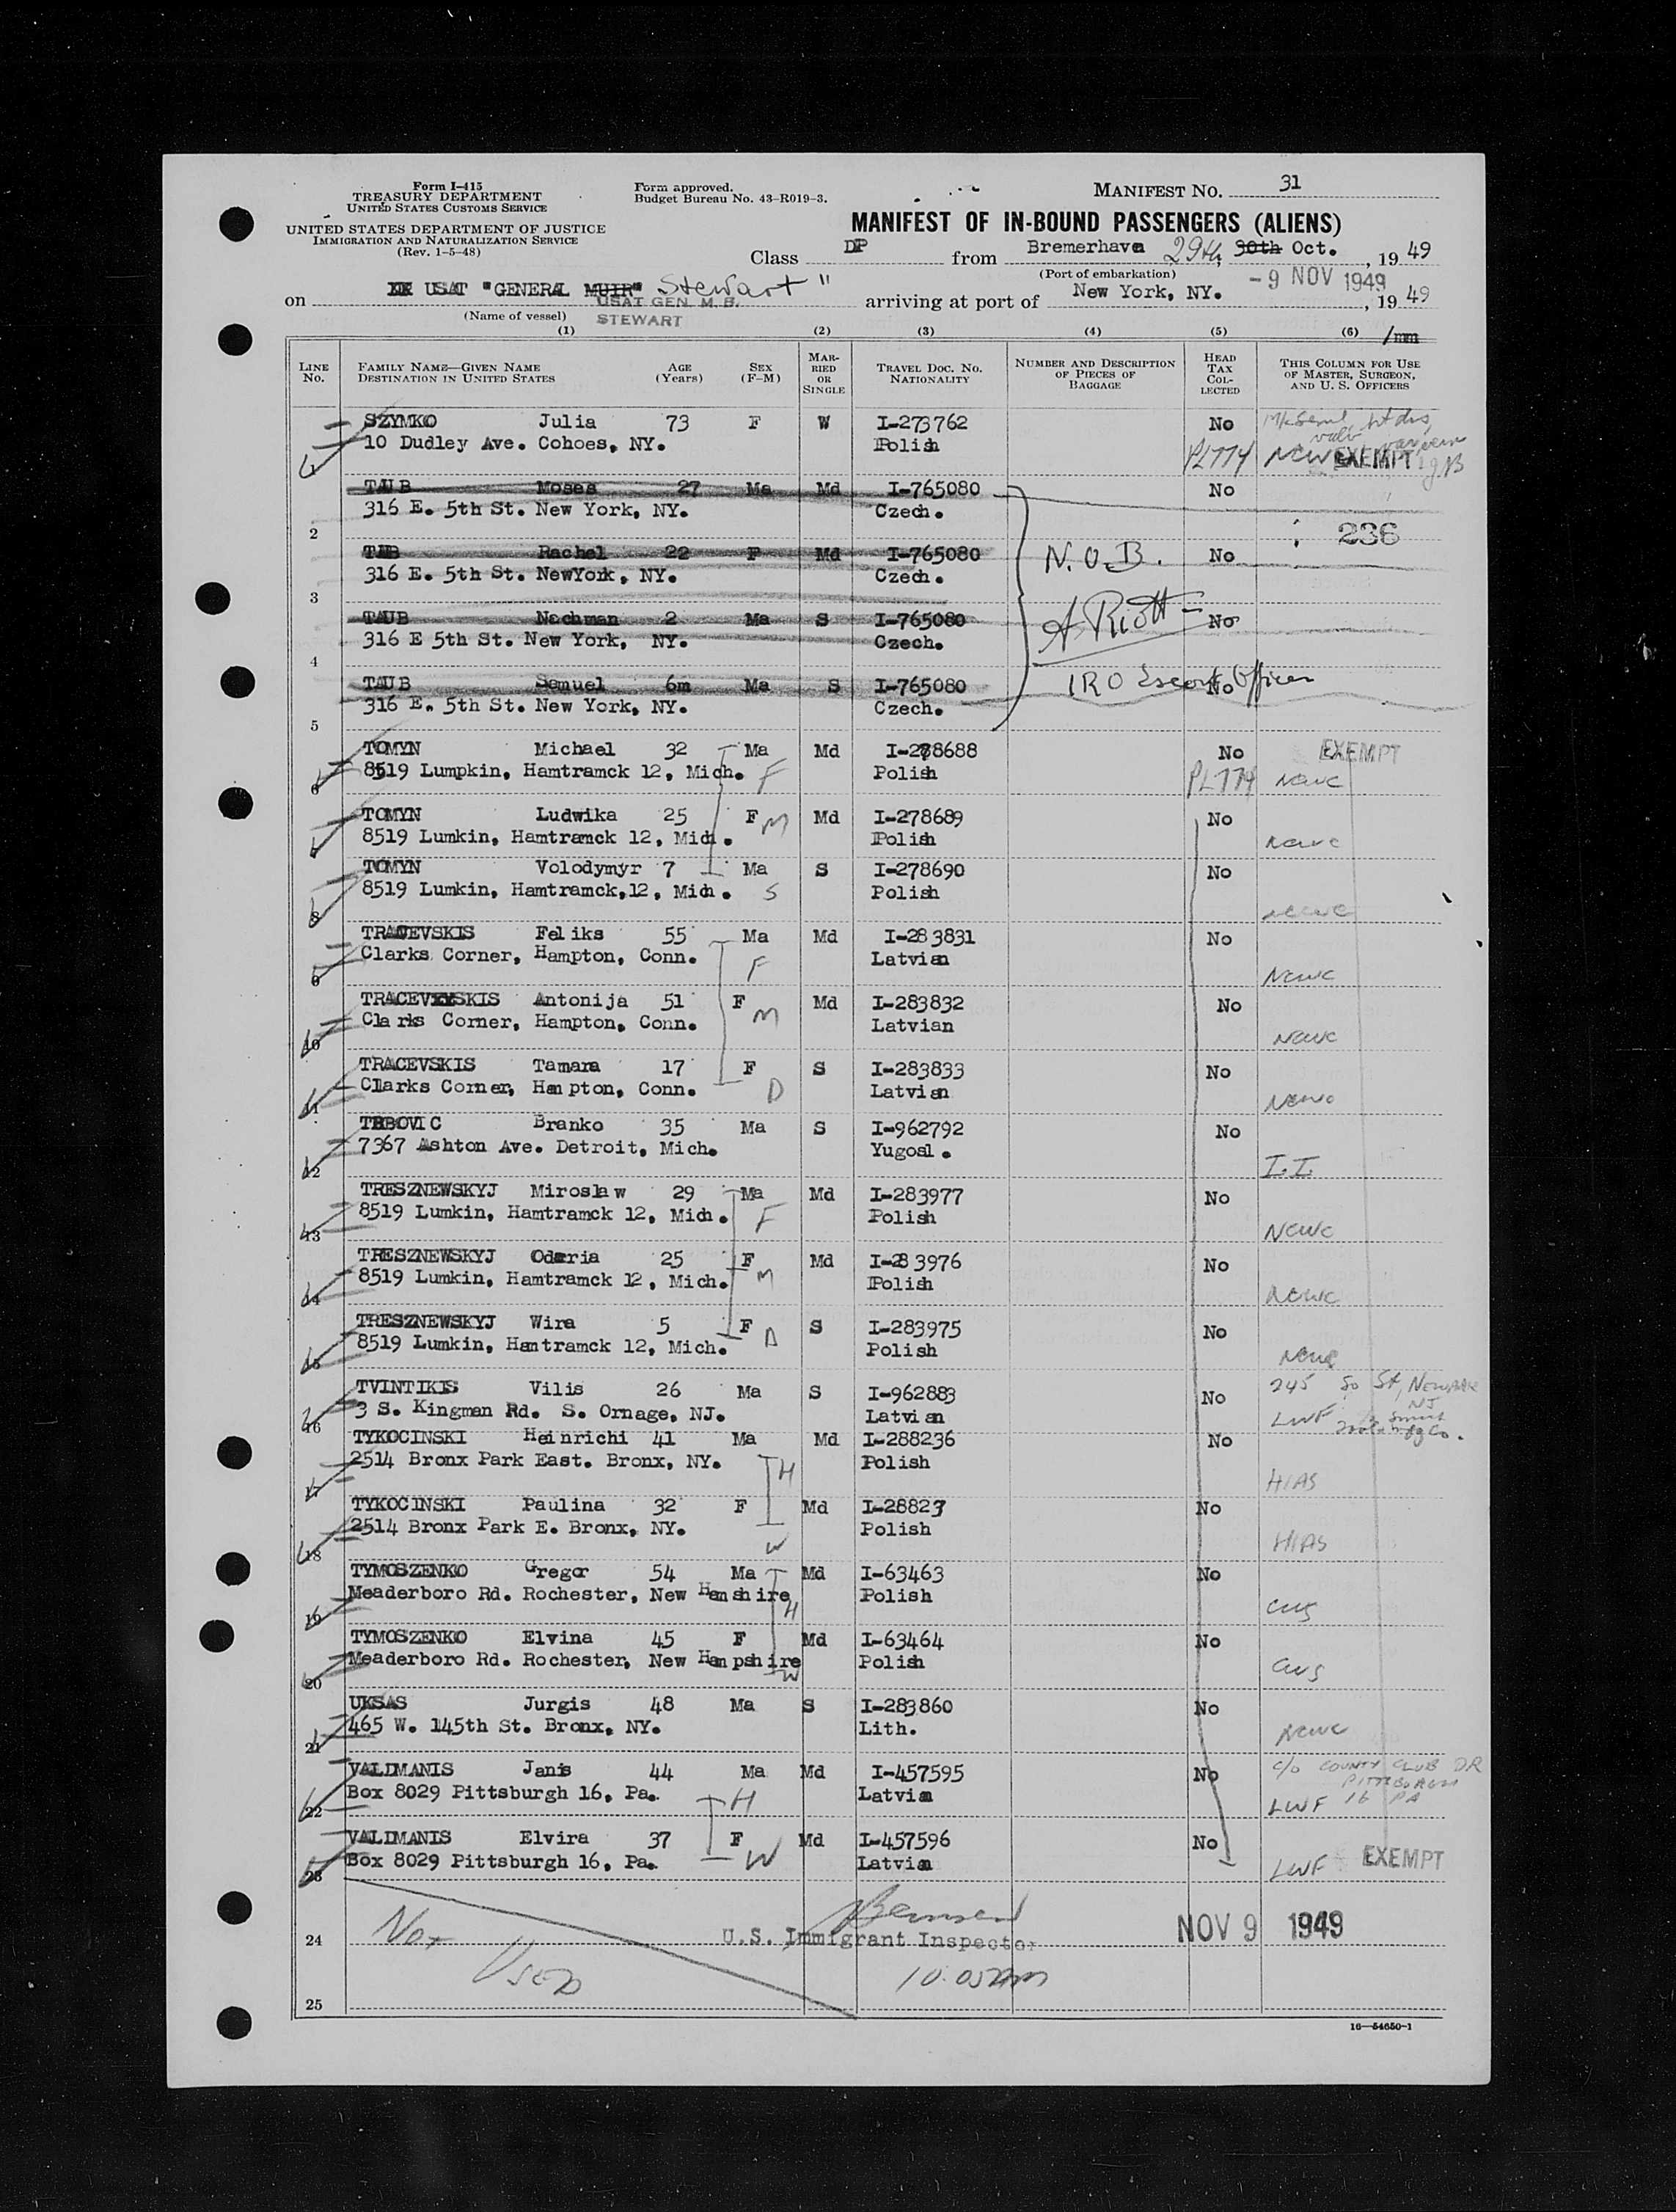 Form I-415
TREASURY DEPARTMENT
UNITED STATES CUSTOMS SERVICE
UNITED STATES DEPARTMENT OF JUSTICE
IMMIGRATION AND NATURALIZATION SERVICE
(Rev. 1-5-48)
Form approved.
Budget Bureau No. 43-R019-3.
MANIFEST NO. 31
MANIFEST OF IN-BOUND PASSENGERS (ALIENS)
Class DP from Bremerhaven 29th, 30th Oct., 1949
(Port of embarkation)
on USAT "GENERAL MUIR" Stewart" arriving at port of New York, NY. -9 NOV 1949, 1949
(Name of vessel) USAT GEN. M. B. STEWART
(1) (2) (3) (4) (5) (6) /mm
LINE No. FAMILY NAME—GIVEN NAME DESTINATION IN UNITED STATES AGE (Years) SEX (F-M) MARRIED OR SINGLE TRAVEL DOC. No. NATIONALITY NUMBER AND DESCRIPTION OF PIECES OF BAGGAGE HEAD TAX COLLECTED THIS COLUMN FOR USE OF MASTER, SURGEON, AND U. S. OFFICERS
SZYMKO Julia 73 F W I-273762 No
1 10 Dudley Ave. Cohoes, NY. Polish PL774 NCWC EXEMPT
TAUB Moses 27 Ma Md I-765080 No
2 316 E. 5th St. New York, NY. Czech. 236
TAUB Rachel 22 F Md I-765080 N.O.B. No
3 316 E. 5th St. NewYork, NY. Czech.
TAUB Nachman 2 Ma S I-765080 A Riott No
4 316 E 5th St. New York, NY. Czech.
TAUB Samuel 6m Ma S I-765080 IRO Escort Officer No
5 316 E. 5th St. New York, NY. Czech.
TOMYN Michael 32 Ma Md I-278688 No EXEMPT
6 8519 Lumpkin, Hamtramck 12, Mich. F Polish PL774 NCWC
TOMYN Ludwika 25 F M Md I-278689 No
7 8519 Lumkin, Hamtramck 12, Mich. Polish NCWC
TOMYN Volodymyr 7 Ma S I-278690 No
8 8519 Lumkin, Hamtramck,12, Mich. S Polish NCWC
TRACEVSKIS Feliks 55 Ma Md I-283831 No
9 Clarks Corner, Hampton, Conn. F Latvian NCWC
TRACEVSKIS Antonija 51 F Md I-283832 No
10 Clarks Corner, Hampton, Conn. M Latvian NCWC
TRACEVSKIS Tamara 17 F S I-283833 No
11 Clarks Corner, Hampton, Conn. D Latvian NCWC
TRBOVIC Branko 35 Ma S I-962792 No
12 7367 Ashton Ave. Detroit, Mich. Yugosl. I.I.
TRESZNEWSKYJ Miroslaw 29 Ma Md I-283977 No
13 8519 Lumkin, Hamtramck 12, Mich. F Polish NCWC
TRESZNEWSKYJ Odaria 25 F Md I-283976 No
14 8519 Lumkin, Hamtramck 12, Mich. M Polish NCWC
TRESZNEWSKYJ Wira 5 F S I-283975 No
15 8519 Lumkin, Hamtramck 12, Mich. D Polish NCWC
TVINTIKIS Vilis 26 Ma S I-962883 No 245 So St, Newark NJ
16 3 S. Kingman Rd. S. Ornage, NJ. Latvian LWF
TYKOCINSKI Heinrichi 41 Ma Md I-288236 No
17 2514 Bronx Park East. Bronx, NY. H Polish HIAS
TYKOCINSKI Paulina 32 F Md I-28823 No
18 2514 Bronx Park E. Bronx, NY. W Polish HIAS
TYMOSZENKO Gregor 54 Ma Md I-63463 No
19 Meaderboro Rd. Rochester, New Hamshire H Polish CWS
TYMOSZENKO Elvina 45 F Md I-63464 No
20 Meaderboro Rd. Rochester, New Hampshire W Polish CWS
UKSAS Jurgis 48 Ma S I-283860 No
21 465 W. 145th St. Bronx, NY. Lith. NCWC
VALDMANIS Janis 44 Ma Md I-457595 No c/o COUNTY CLUB DR
22 Box 8029 Pittsburgh 16, Pa. H Latvian LWF PITTSBURGH 16 PA
VALDMANIS Elvira 37 F Md I-457596 No
23 Box 8029 Pittsburgh 16, Pa. W Latvian LWF EXEMPT
24 Not Used U.S. Immigrant Inspector NOV 9 1949
25 10.05am
16—54650-1